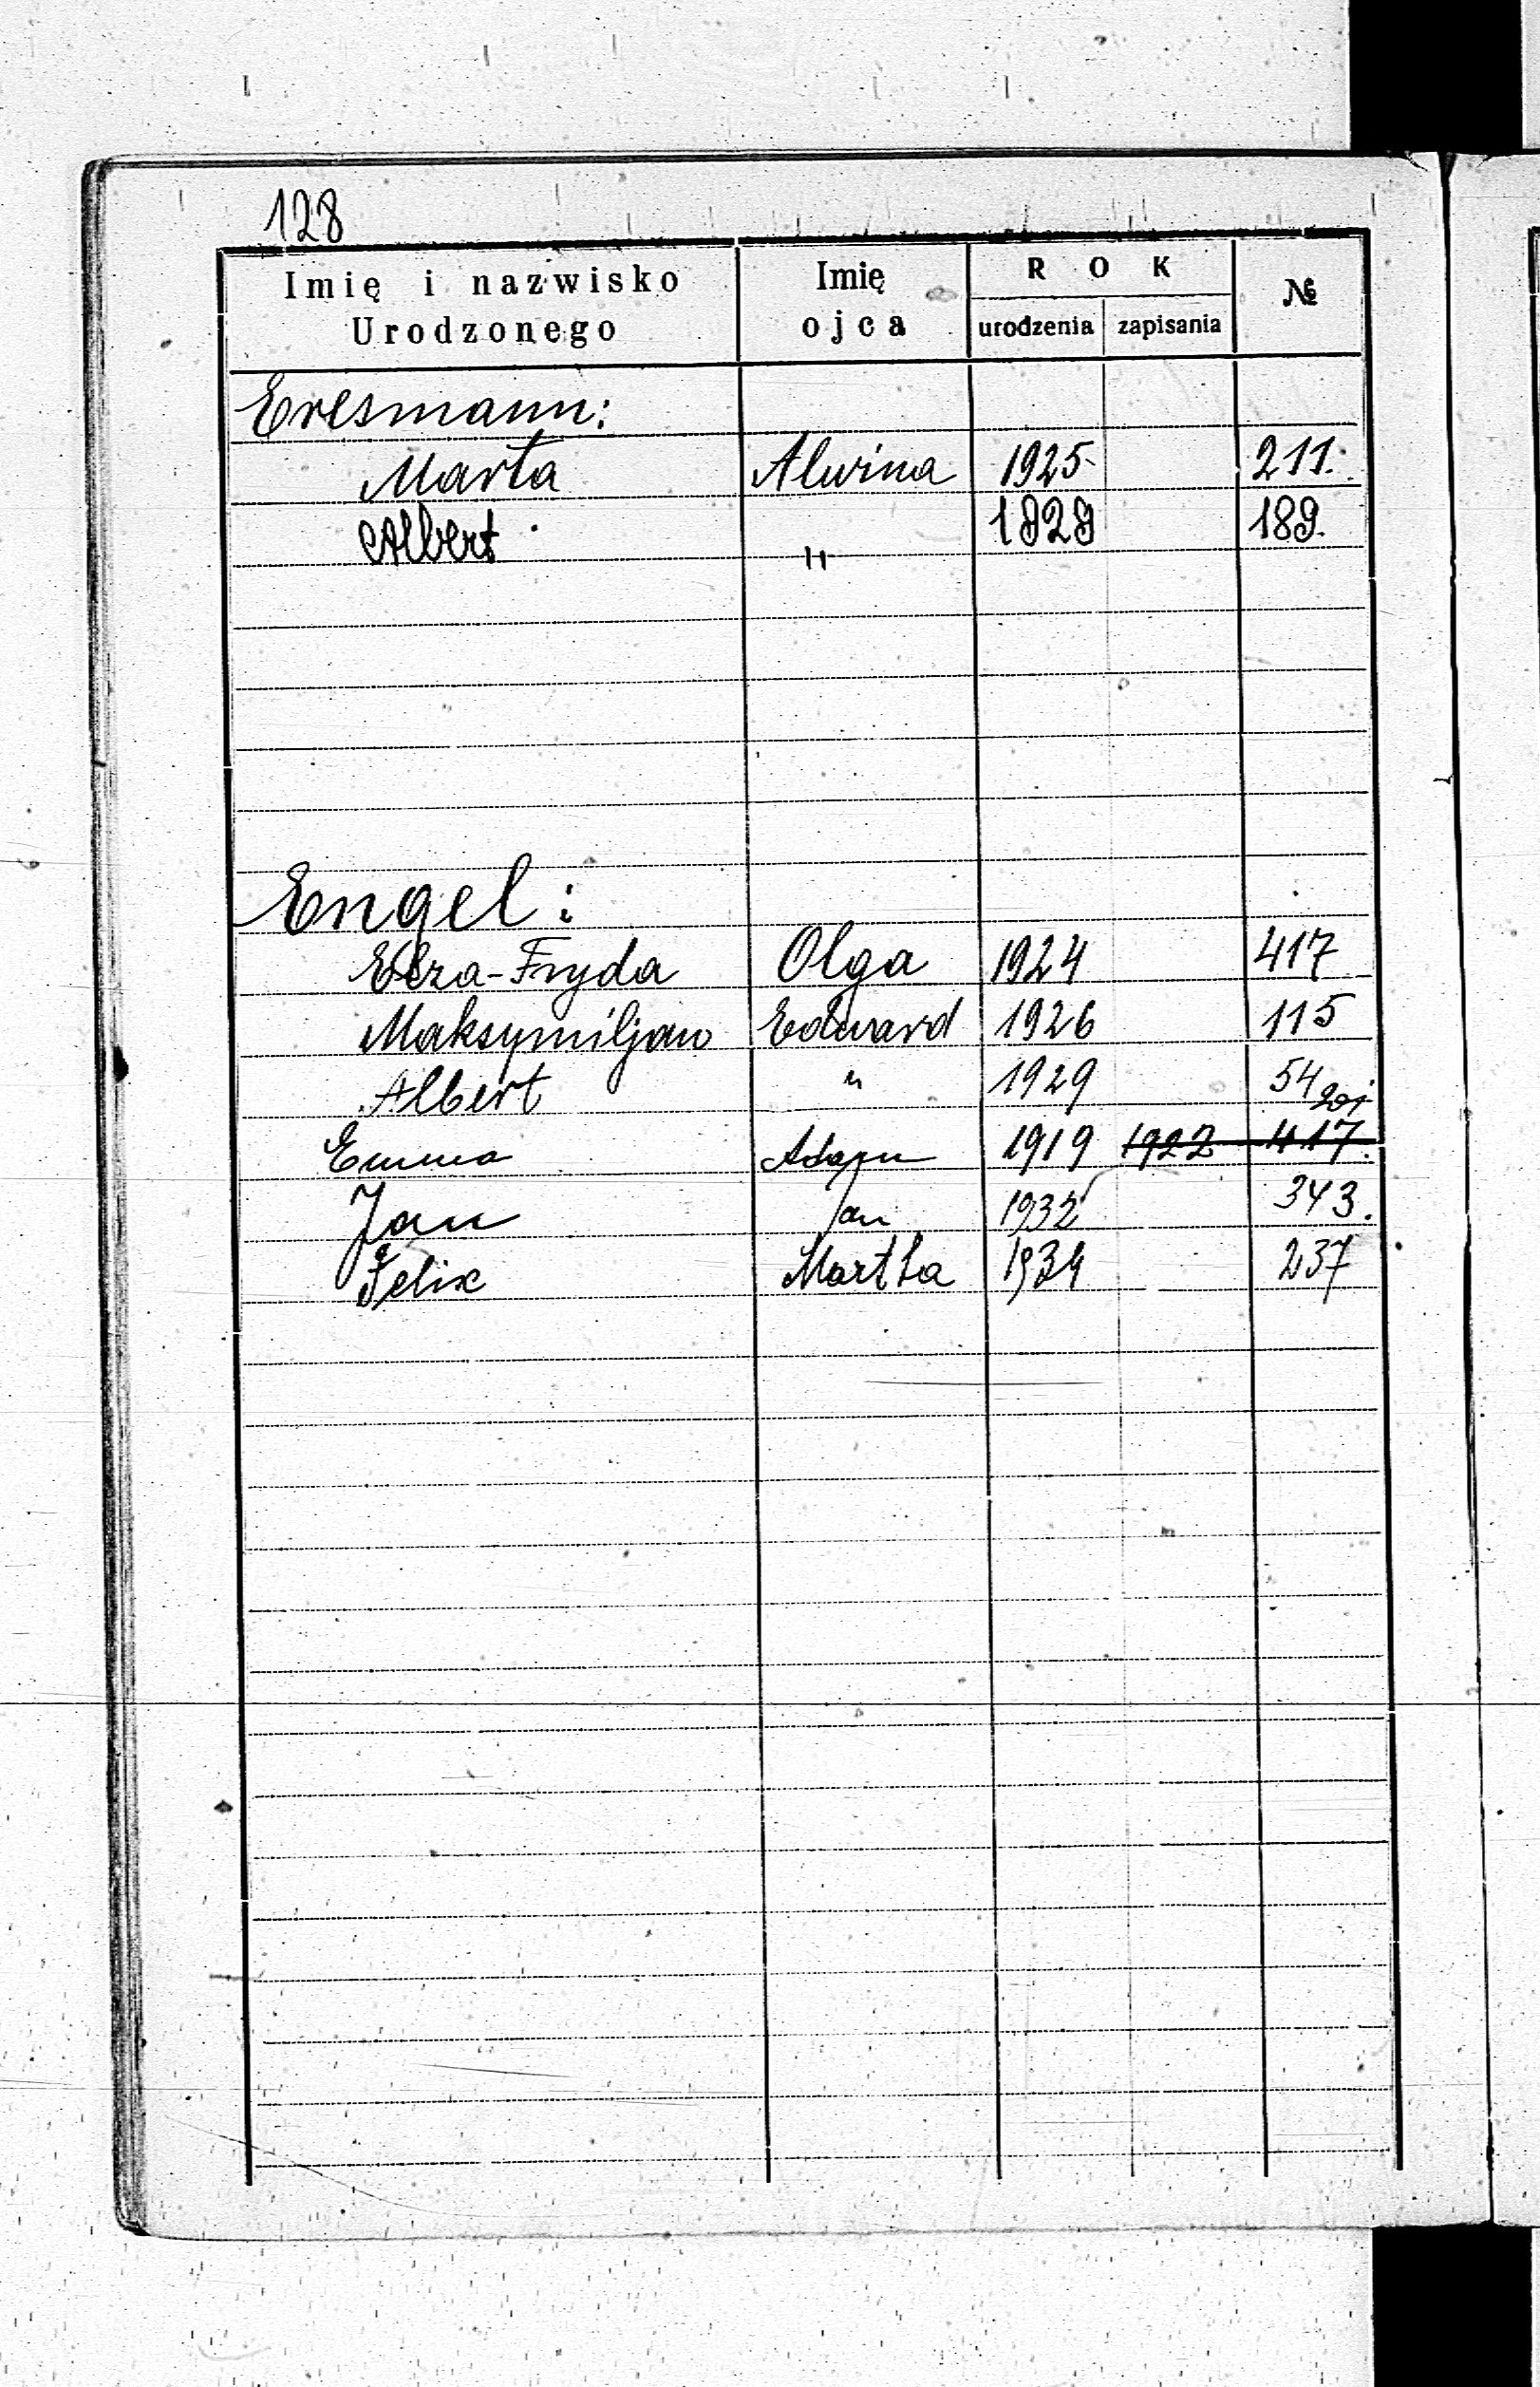 128
Imię i nazwisko Urodzonego Imię ojca ROK urodzenia zapisania №
Eresmann:
Marta Alwina 1925 211.
Albert " 1929 189.
Engel:
Elza-Fryda Olga 1924 417
Maksymiljan Edward 1926 115
Albert " 1929 54
Emma Adam 1919 1922 417.
Jan Jan 1932 343.
Felix Martha 1934 237